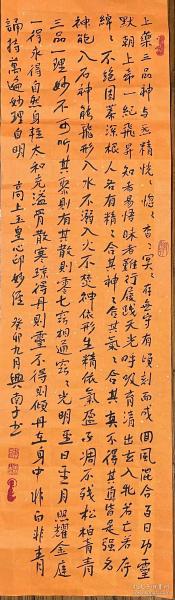 上藥三品神与炁精恍〻惚〻杳〻冥〻存無守有頃刻而成回風混合百日功靈
默朝上帝一紀飛昇知者易悟昧者難行履踐天光呼吸育清出玄入牝若亡若存
綿〻不絕固蒂深根人各有精〻合其神〻合其氣〻合其真不得其真皆是強名
神能入石神能飛形入水不溺入火不焚神依形生精依氣盈不凋不殘松柏青青
三品一理妙不可聽其聚則有其散則零七竅相通竅〻光明聖日聖月照耀金庭
一得永得自然身輕太和充溢骨散寒瓊得丹則靈不得則傾丹在身中非白非青
誦持萬遍妙理自明 高上玉皇心印妙經 癸卯九月興南子書